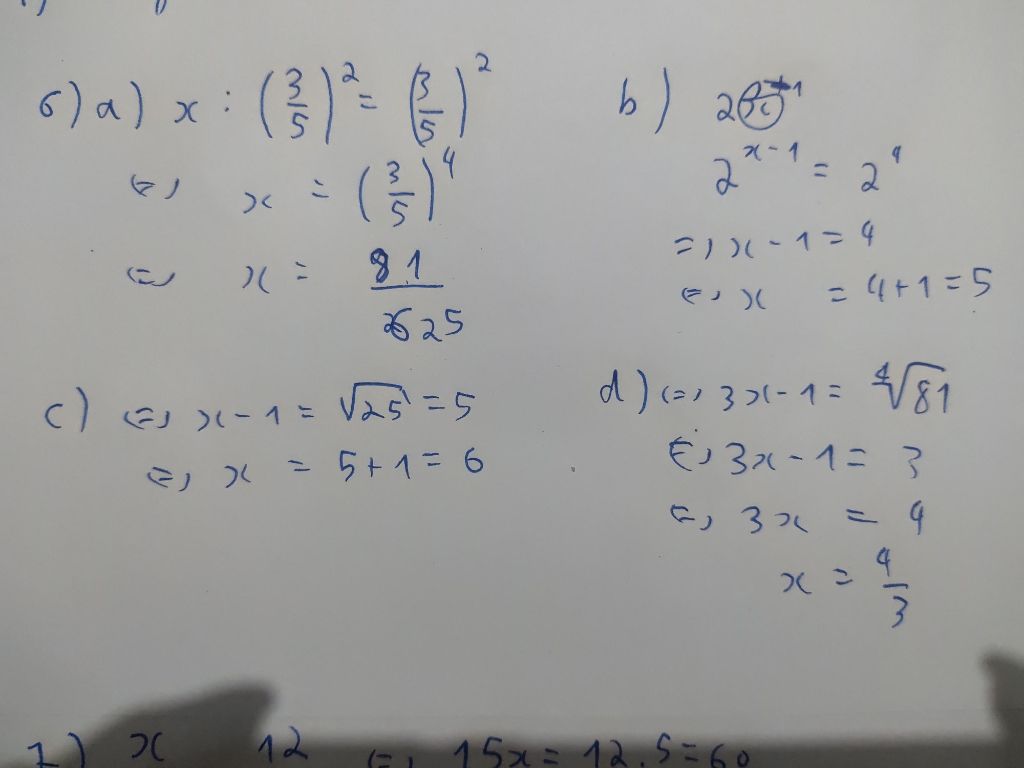 6) a) x : (3/5)^2 = (3/5)^2
<=> x = (3/5)^4
<=> x = 81/625
b)
2^{x-1} = 2^4
=> x - 1 = 4
<=> x = 4+1 = 5
c) <=> x - 1 = √25 = 5
<=> x = 5+1 = 6
d) <=> 3x - 1 = ∜81
<=> 3x - 1 = 3
<=> 3x = 4
x = 4/3
7) x 12 <=> 15x = 12.5 = 60